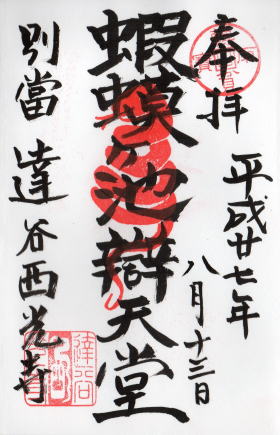 奉拝
平成廿七年
八月十三日
蝦蟆ヶ池辯天堂
別當 達谷西光寺
達谷